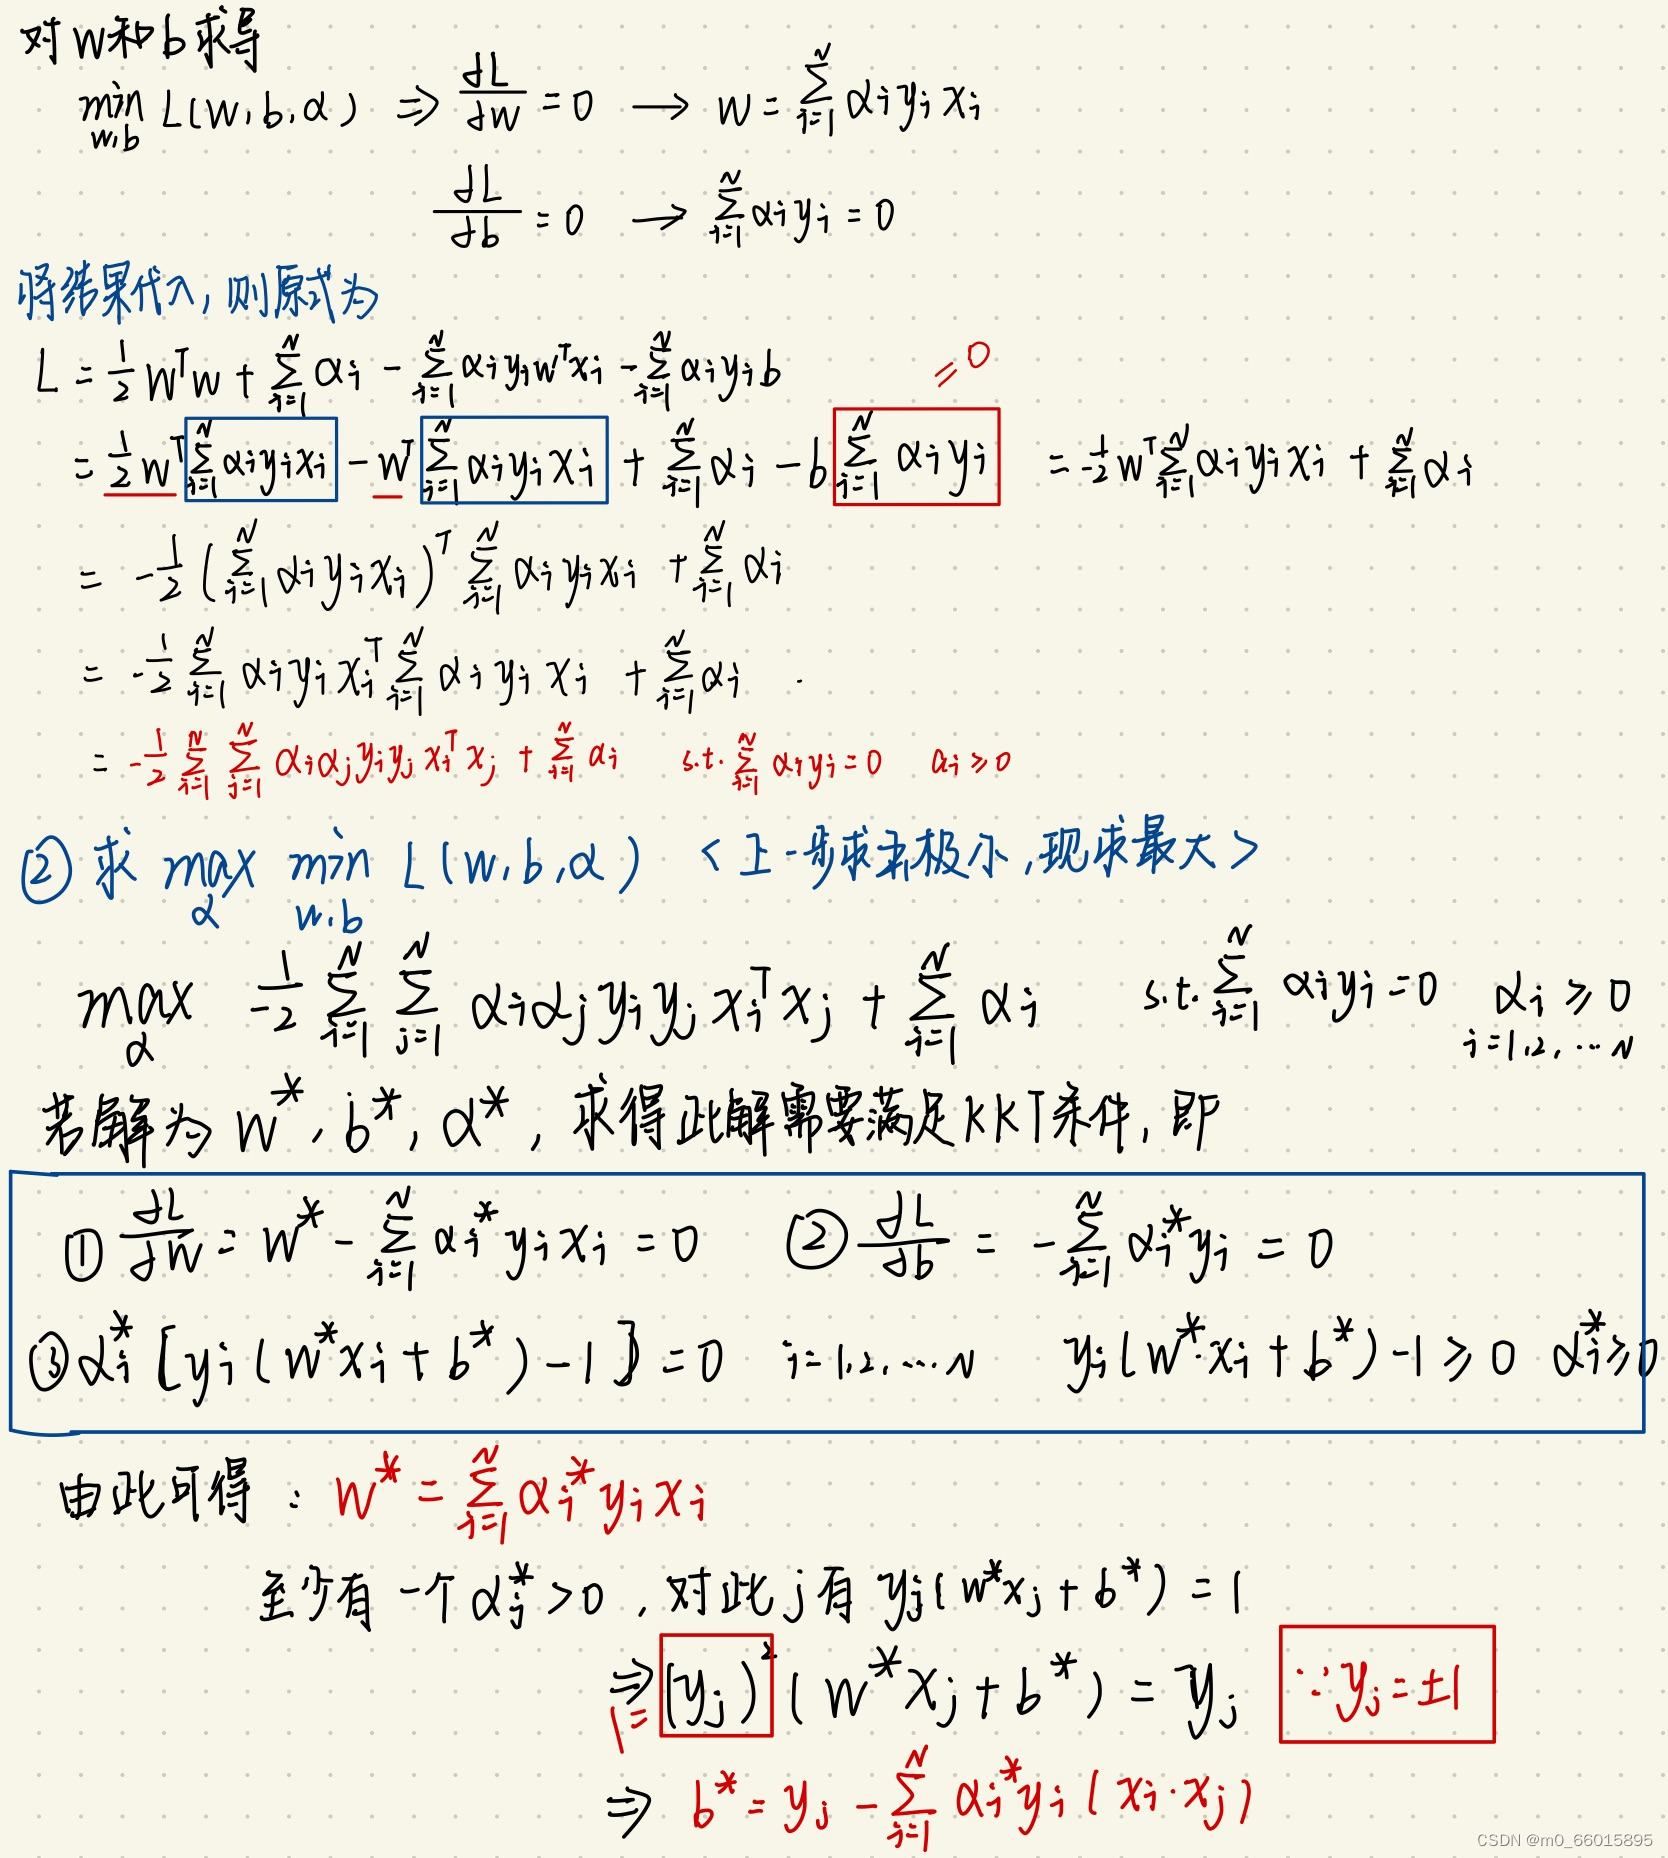 对w和b求导
min_{w,b} L(w,b,α) ⇒ ∂L/∂w = 0 → w = ∑_{i=1}^{N} α_i y_i x_i
∂L/∂b = 0 → ∑_{i=1}^{N} α_i y_i = 0
将结果代入,则原式为
L = 1/2 w^T w + ∑_{i=1}^{N} α_i - ∑_{i=1}^{N} α_i y_i w^T x_i - ∑_{i=1}^{N} α_i y_i b
= 0
= 1/2 w^T ∑_{i=1}^{N} α_i y_i x_i - w^T ∑_{i=1}^{N} α_i y_i x_i + ∑_{i=1}^{N} α_i - b ∑_{i=1}^{N} α_i y_i = -1/2 w^T ∑_{i=1}^{N} α_i y_i x_i + ∑_{i=1}^{N} α_i
= -1/2 (∑_{i=1}^{N} α_i y_i x_i)^T ∑_{i=1}^{N} α_i y_i x_i + ∑_{i=1}^{N} α_i
= -1/2 ∑_{i=1}^{N} α_i y_i x_i^T ∑_{i=1}^{N} α_i y_i x_i + ∑_{i=1}^{N} α_i
= -1/2 ∑_{i=1}^{N} ∑_{j=1}^{N} α_i α_j y_i y_j x_i^T x_j + ∑_{i=1}^{N} α_i s.t. ∑_{i=1}^{N} α_i y_i = 0 α_i ≥ 0
② 求 max_α min_{w,b} L(w,b,α) <上一步求极小,现求最大>
max_α -1/2 ∑_{i=1}^{N} ∑_{j=1}^{N} α_i α_j y_i y_j x_i^T x_j + ∑_{i=1}^{N} α_i s.t. ∑_{i=1}^{N} α_i y_i = 0 α_i ≥ 0
i=1,2,…N
若解为 w*, b*, α*, 求得此解需要满足KKT条件, 即
① ∂L/∂w = w* - ∑_{i=1}^{N} α_i* y_i x_i = 0 ② ∂L/∂b = -∑_{i=1}^{N} α_i* y_i = 0
③ α_i* [y_i(w* x_i + b*) - 1] = 0 i=1,2,…N y_i(w*·x_i + b*) - 1 ≥ 0 α_i* ≥ 0
由此可得: w* = ∑_{i=1}^{N} α_i* y_i x_i
至少有一个 α_j* > 0, 对此j有 y_j(w* x_j + b*) = 1
⇒ (y_j)^2 (w* x_j + b*) = y_j ∵ y_j = ±1
1=
⇒ b* = y_j - ∑_{i=1}^{N} α_i* y_i (x_i·x_j)
CSDN @m0_66015895